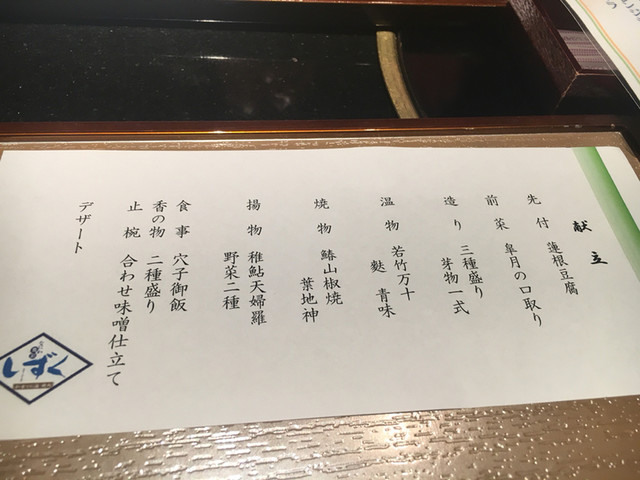 献立
先付 蓮根豆腐
前菜 皐月の口取り
造り 三種盛り
芽物一式
温物 若竹万十
麩 青味
焼物 鰆山椒焼
葉地神
揚物 稚鮎天婦羅
野菜二種
食事 穴子御飯
香の物 二種盛り
止椀 合わせ味噌仕立て
デザート
しずく